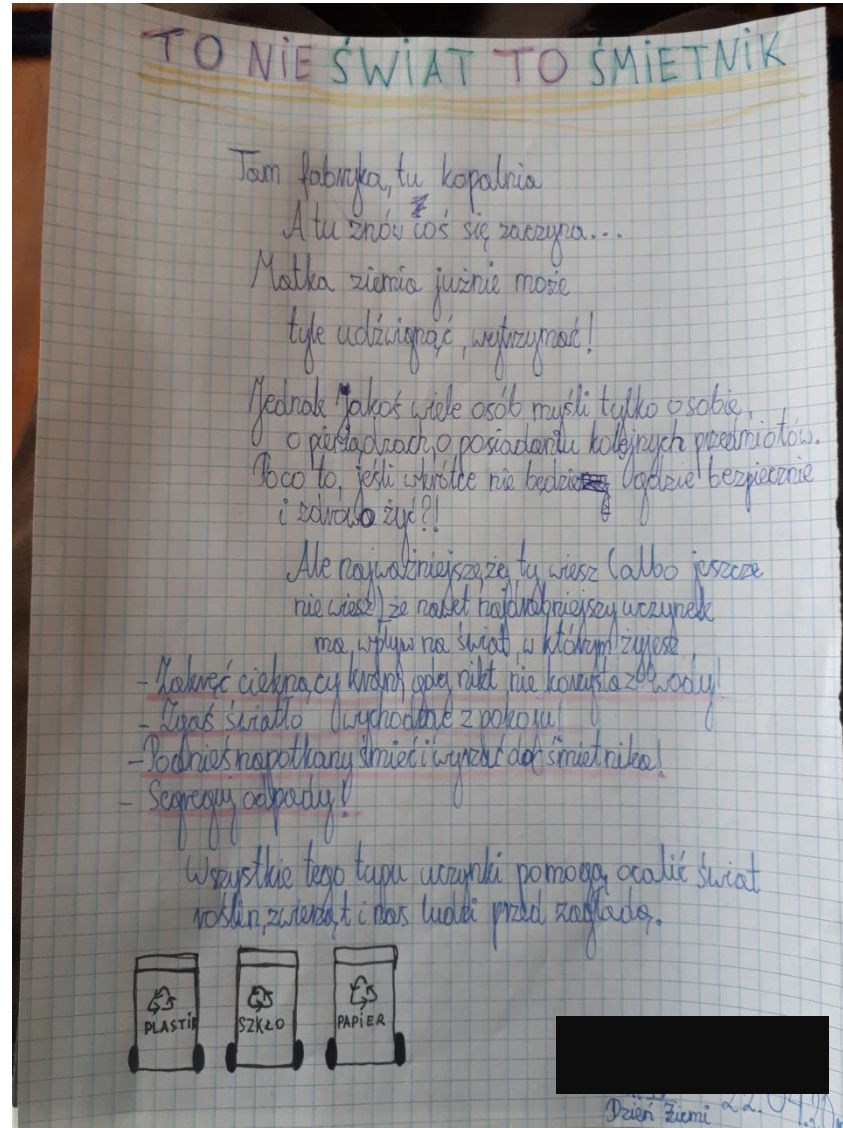 TO NIE ŚWIAT TO ŚMIETNIK
Tam fabryka, tu kopalnia
A tu znów coś się zaczyna...
Matka ziemia już nie może
tyle udźwignąć, wytrzymać!
Jednak jakoś wiele osób myśli tylko o sobie,
o pieniądzach, o posiadaniu kolejnych przedmiotów.
Poco to, jeśli wkrótce nie będzie gdzie bezpiecznie
i zdrowo żyć?!
Ale najważniejsze, że ty wiesz (albo jeszcze
nie wiesz), że nawet najdrobniejszy uczynek
ma wpływ na świat, w którym żyjesz
- Zakręć cieknący kran, gdy nikt nie korzysta z wody!
- Zgaś światło wychodząc z pokoju!
- Podnieś napotkany śmieć i wyrzuć do śmietnika!
- Segreguj odpady!
Wszystkie tego typu uczynki pomogą ocalić świat
roślin, zwierząt i nas ludzi przed zagładą.
PLASTIK
SZKŁO
PAPIER
Dzień Ziemi 22.04.20